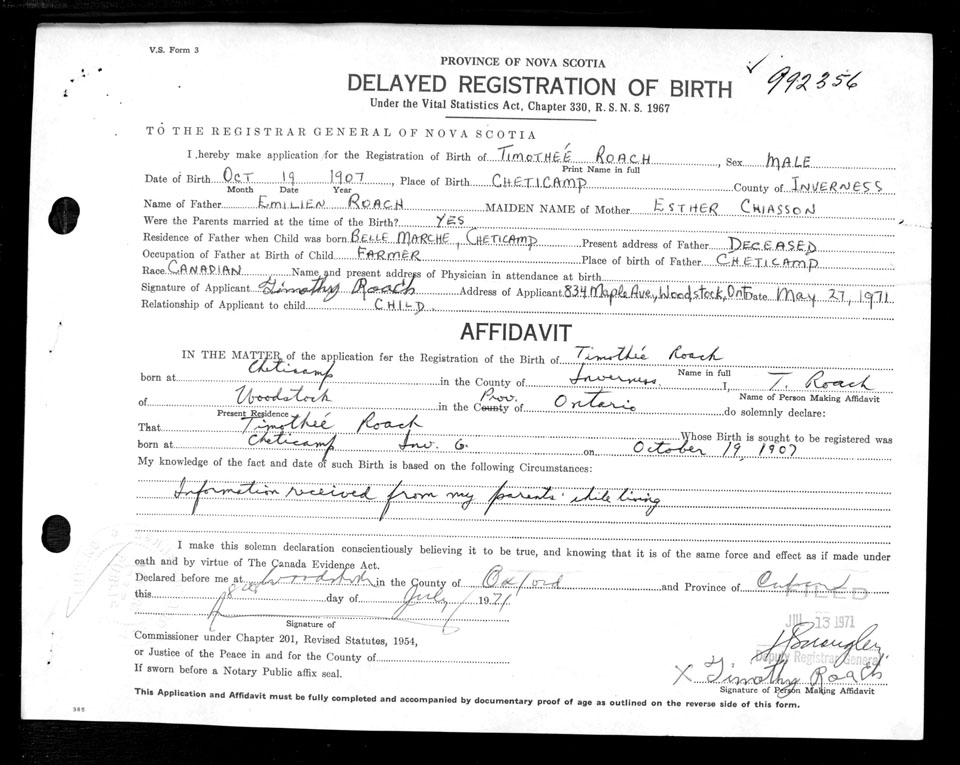 V.S. Form 3
PROVINCE OF NOVA SCOTIA
DELAYED REGISTRATION OF BIRTH
992356
Under the Vital Statistics Act, Chapter 330, R.S.N.S. 1967
TO THE REGISTRAR GENERAL OF NOVA SCOTIA
I hereby make application for the Registration of Birth of TIMOTHEÉ ROACH, Sex MALE
Print Name in full
Date of Birth OCT 19 1907, Place of Birth CHETICAMP County of INVERNESS
Month Date Year
Name of Father EMILIEN ROACH MAIDEN NAME of Mother ESTHER CHIASSON
Were the Parents married at the time of the Birth? YES
Residence of Father when Child was born BELLE MARCHE, CHETICAMP Present address of Father DECEASED
Occupation of Father at Birth of Child FARMER Place of birth of Father CHETICAMP
Race CANADIAN Name and present address of Physician in attendance at birth
Signature of Applicant Timothy Roach Address of Applicant 834 Maple Ave., Woodstock, Ont Date May 27, 1971
Relationship of Applicant to child CHILD
AFFIDAVIT
IN THE MATTER of the application for the Registration of the Birth of Timotheé Roach
Name in full
born at Cheticamp in the County of Inverness I, T. Roach
Name of Person Making Affidavit
of Woodstock in the County Prov. of Ontario do solemnly declare:
Present Residence
That Timotheé Roach Whose Birth is sought to be registered was
born at Cheticamp Inv. Co. on October 19, 1907
My knowledge of the fact and date of such Birth is based on the following Circumstances:
Information received from my parents while living
I make this solemn declaration conscientiously believing it to be true, and knowing that it is of the same force and effect as if made under
oath and by virtue of The Canada Evidence Act.
Declared before me at Woodstock in the County of Oxford and Province of Ontario
this 8th day of July 1971
FILED
JUL 13 1971
Signature of
Commissioner under Chapter 201, Revised Statutes, 1954,
or Justice of the Peace in and for the County of
Deputy Registrar General
If sworn before a Notary Public affix seal.
X T. Timothy Roach
Signature of Person Making Affidavit
This Application and Affidavit must be fully completed and accompanied by documentary proof of age as outlined on the reverse side of this form.
385